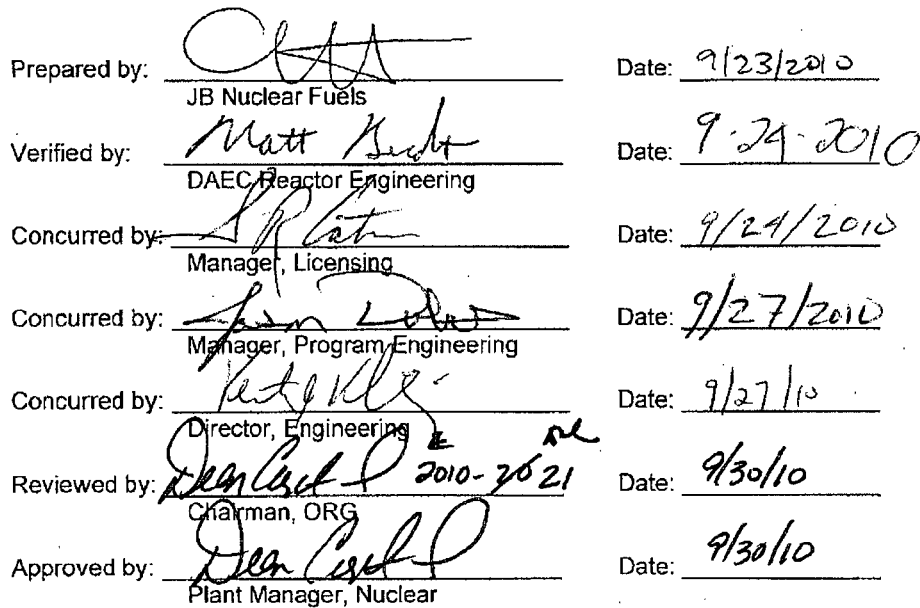 Prepared by: Date: 9/23/2010
JB Nuclear Fuels
Verified by: Matt Date: 9-24-2010
DAEC Reactor Engineering
Concurred by: Date: 9/24/2010
Manager, Licensing
Concurred by: Date: 9/27/2010
Manager, Program Engineering
Concurred by: Date: 9/27/10
Director, Engineering
Reviewed by: Dean 2010- 21 Date: 9/30/10
Chairman, ORG
Approved by: Dean Date: 9/30/10
Plant Manager, Nuclear